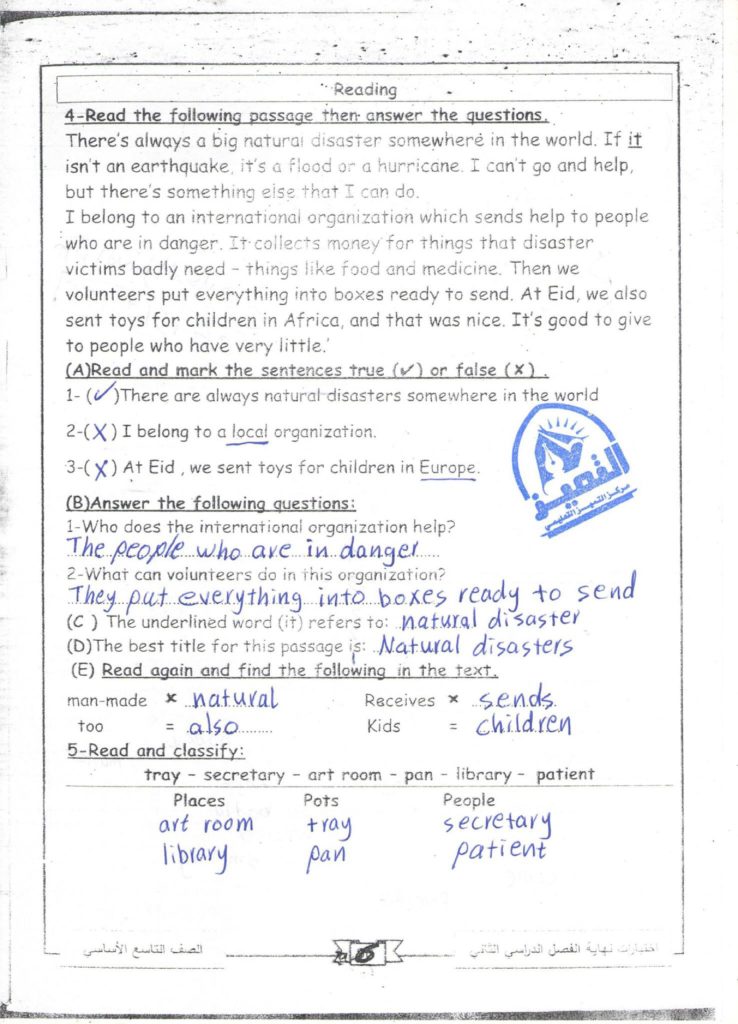 Reading
4-Read the following passage then answer the questions.
There's always a big natural disaster somewhere in the world. If it
isn't an earthquake, it's a flood or a hurricane. I can't go and help,
but there's something else that I can do.
I belong to an international organization which sends help to people
who are in danger. It collects money for things that disaster
victims badly need – things like food and medicine. Then we
volunteers put everything into boxes ready to send. At Eid, we also
sent toys for children in Africa, and that was nice. It's good to give
to people who have very little.'
(A)Read and mark the sentences true (✓) or false (✗) .
1- (✓)There are always natural disasters somewhere in the world
2-(X) I belong to a local organization.
3-(X) At Eid , we sent toys for children in Europe.
التميز
مركز التميز التعليمي
(B)Answer the following questions:
1-Who does the international organization help?
The people who are in danger
2-What can volunteers do in this organization?
They put everything into boxes ready to send
(C ) The underlined word (it) refers to: natural disaster
(D)The best title for this passage is: Natural disasters
(E) Read again and find the following in the text.
man-made × natural Receives × sends
too = also Kids = children
5-Read and classify:
tray – secretary – art room – pan – library – patient
Places Pots People
art room tray secretary
library pan patient
اختبارات نهاية الفصل الدراسي الثاني
الصف التاسع الأساسي